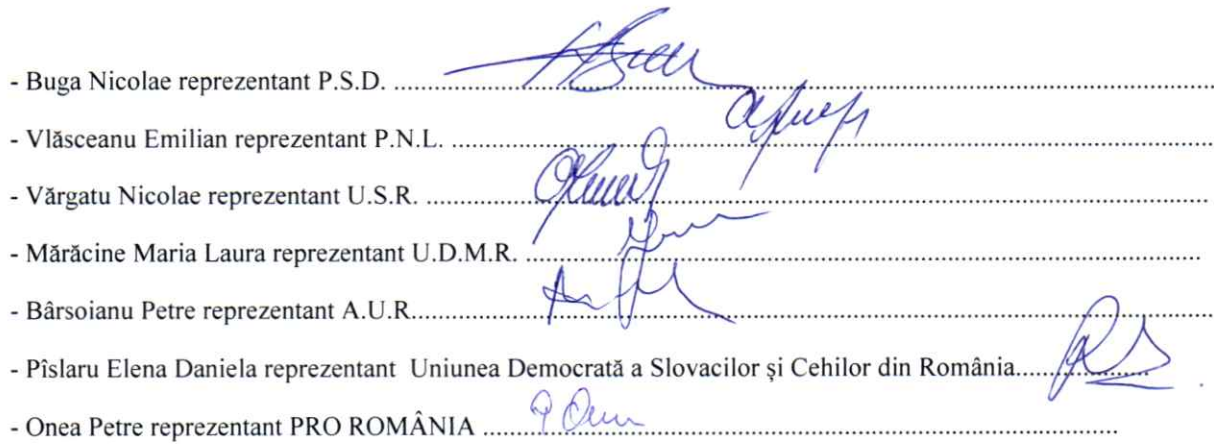 - Buga Nicolae reprezentant P.S.D. ........................................................................................................................................
- Vlăsceanu Emilian reprezentant P.N.L. ...............................................................................................................................
- Vărgatu Nicolae reprezentant U.S.R. ..................................................................................................................................
- Mărăcine Maria Laura reprezentant U.D.M.R. ..................................................................................................................
- Bârsoianu Petre reprezentant A.U.R.....................................................................................................................................
- Pîslaru Elena Daniela reprezentant  Uniunea Democrată a Slovacilor și Cehilor din România...........................
- Onea Petre reprezentant PRO ROMÂNIA ..........................................................................................................